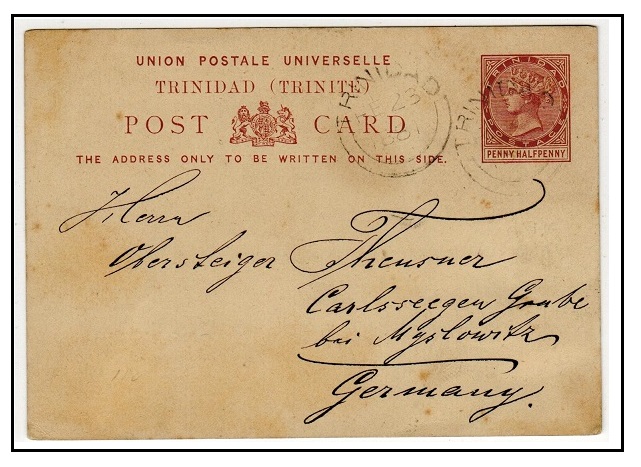 UNION POSTALE UNIVERSELLE
TRINIDAD (TRINITÉ)
POST CARD
THE ADDRESS ONLY TO BE WRITTEN ON THIS SIDE.
TRINIDAD
POSTAGE
PENNY HALFPENNY
TRINIDAD
23
TRINIDAD
Herrn
Obersteiger Theusner
Carlssegen Grube
bei Myslowitz
Germany.